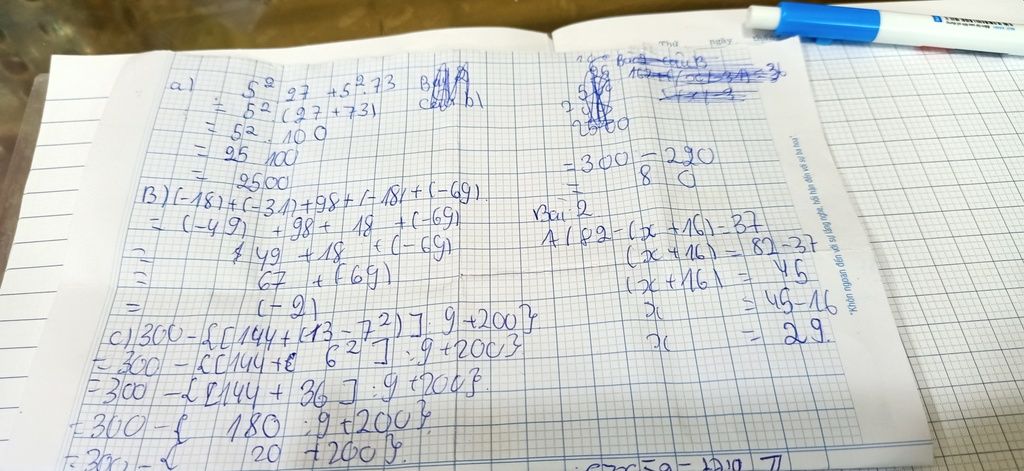 a) 5² 27 + 5² . 73
= 5² (27 + 73)
= 5² . 100
= 25 100
= 2500
B) (-18) + (-31) + 98 + |-18| + (-69)
= (-49) + 98 + 18 + (-69)
= 49 + 18 + (-69)
= 67 + (69)
= (-2)
C) 300 - {[144 + (13 - 7²)] : 9 + 200}
= 300 - {[144 + 6²] : 9 + 200}
= 300 - {[144 + 36] : 9 + 200}
= 300 - { 180 : 9 + 200}
= 300 - { 20 + 200}
= 300 - 220
= 8 0
Bài 2
A( 82 - (x + 16) = 37
(x + 16) = 82 - 37
(x + 16) = 45
x = 45 - 16
x = 29.
Thứ ngày
"Khôn ngoan đến với sự lắng nghe, hối hận đến với sự ba hoa"